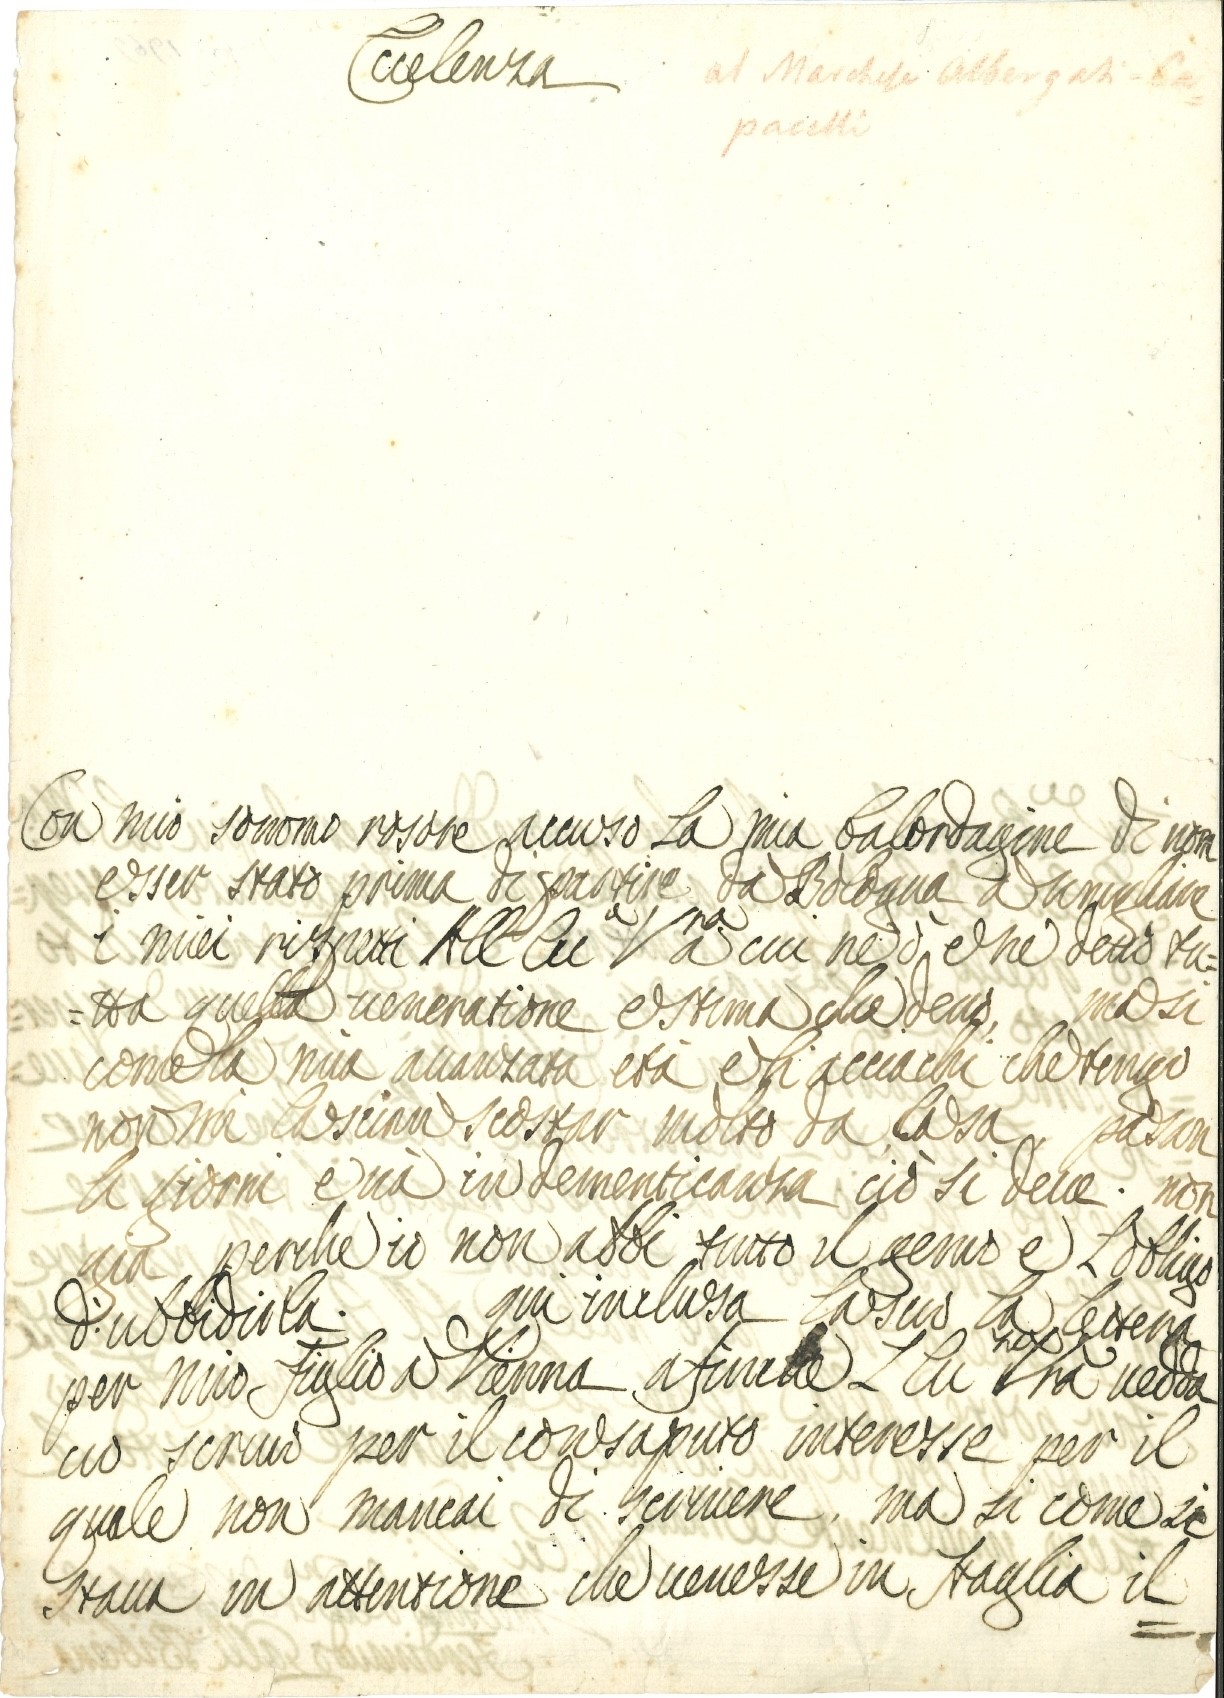 Eccelenza
al Marchese Albergati-Ca=
pacelli
Con mio somomo rosore accuso La mia balordagine di non
esser stato prima di partire da Bologna a
i miei rispetti All Ecc.a V.ra à cui ne ò, e ne devo tu=
=tta quella veneratione e stima che devo, ma si
come la mia avanzata età e li acciachi che tengo
non mi lascian scostar molto da casa, pasan
li giorni e và in dementicanza ciò si deve. non
già perche io non abbi tutto il genio e L obligo
d'ubbidirla. qui inclusa lascio la letera
per mio Figlio a Vienna afinche L Ecc V.ra vedda
ciò scrivo per il consaputo interesse per il
quale non mancai di scrivere, ma si come si
stava in attentione che venesse in Itaglia il